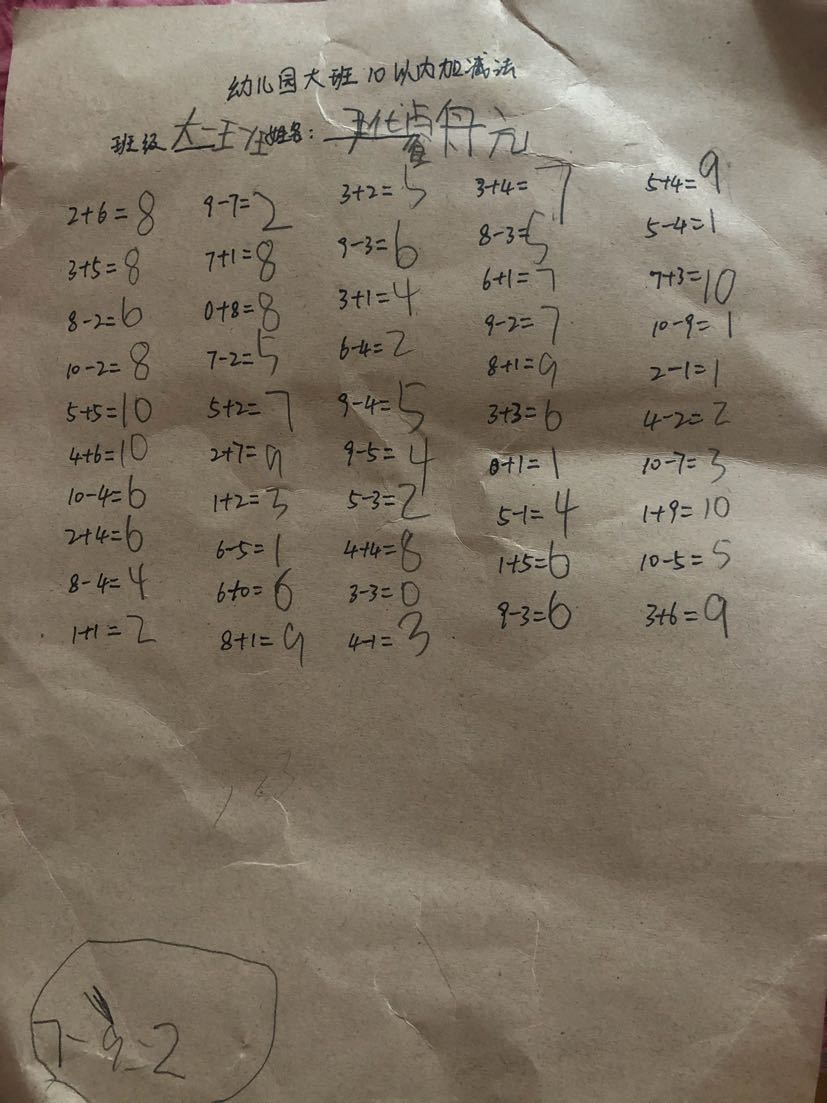 幼儿园大班10以内加减法
班级 大二班 姓名：
2+6=8 9-7=2 3+2=5 3+4=7 5+4=9
3+5=8 7+1=8 9-3=6 8-3=5 5-4=1
8-2=6 0+8=8 3+1=4 6+1=7 7+3=10
10-2=8 7-2=5 6-4=2 9-2=7 10-9=1
5+5=10 5+2=7 9-4=5 8+1=9 2-1=1
4+6=10 2+7=9 9-5=4 3+3=6 4-2=2
10-4=6 1+2=3 5-3=2 0+1=1 10-7=3
2+4=6 6-5=1 4+4=8 5-1=4 1+9=10
8-4=4 6+0=6 3-3=0 1+5=6 10-5=5
1+1=2 8+1=9 4-1=3 9-3=6 3+6=9
123
7-9=2